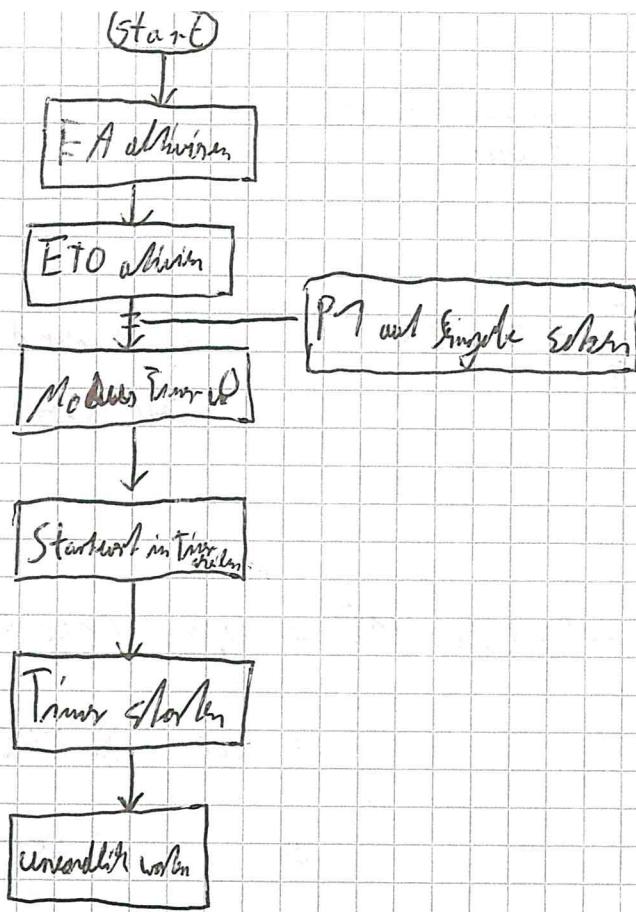 Start
EA aktivieren
ET0 aktivieren
P1 auf Eingabe setzen
Modus Timer 0
Startwert in Timer
Timer starten
unendlich warten